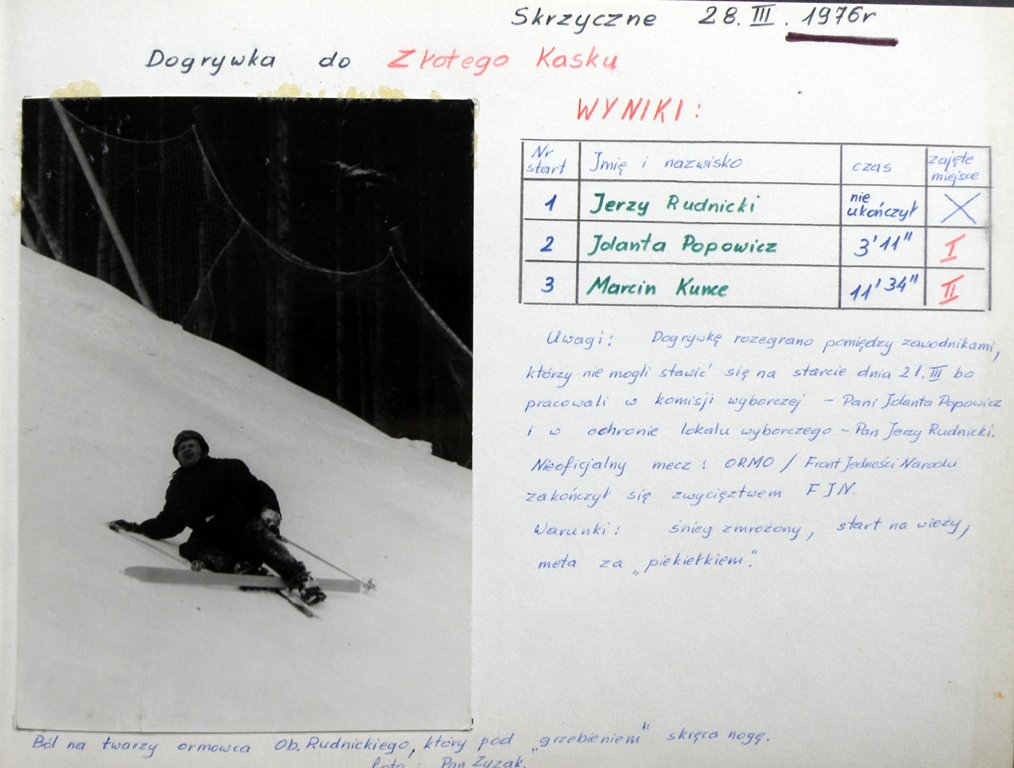 Skrzyczne 28.III.1976r
Dogrywka do Złotego Kasku
WYNIKI:
Nr start Imię i nazwisko czas zajęte miejsce
1 Jerzy Rudnicki nie ukończył X
2 Jolanta Popowicz 3'11" I
3 Marcin Kunce 11'34" II
Uwagi: Dogrywkę rozegrano pomiędzy zawodnikami,
którzy nie mogli stawić się na starcie dnia 21.III bo
pracowali w komisji wyborczej - Pani Jolanta Popowicz
i w ochronie lokalu wyborczego - Pan Jerzy Rudnicki.
Nieoficjalny mecz: ORMO / Front Jedności Narodu
zakończył się zwycięztwem FJN.
Warunki: śnieg zmrożony, start na wieży,
meta za „piekiełkiem".
Ból na twarzy ormowca Ob. Rudnickiego, który pod „grzebieniem" skręca nogę.
foto: Pan Zyzak.